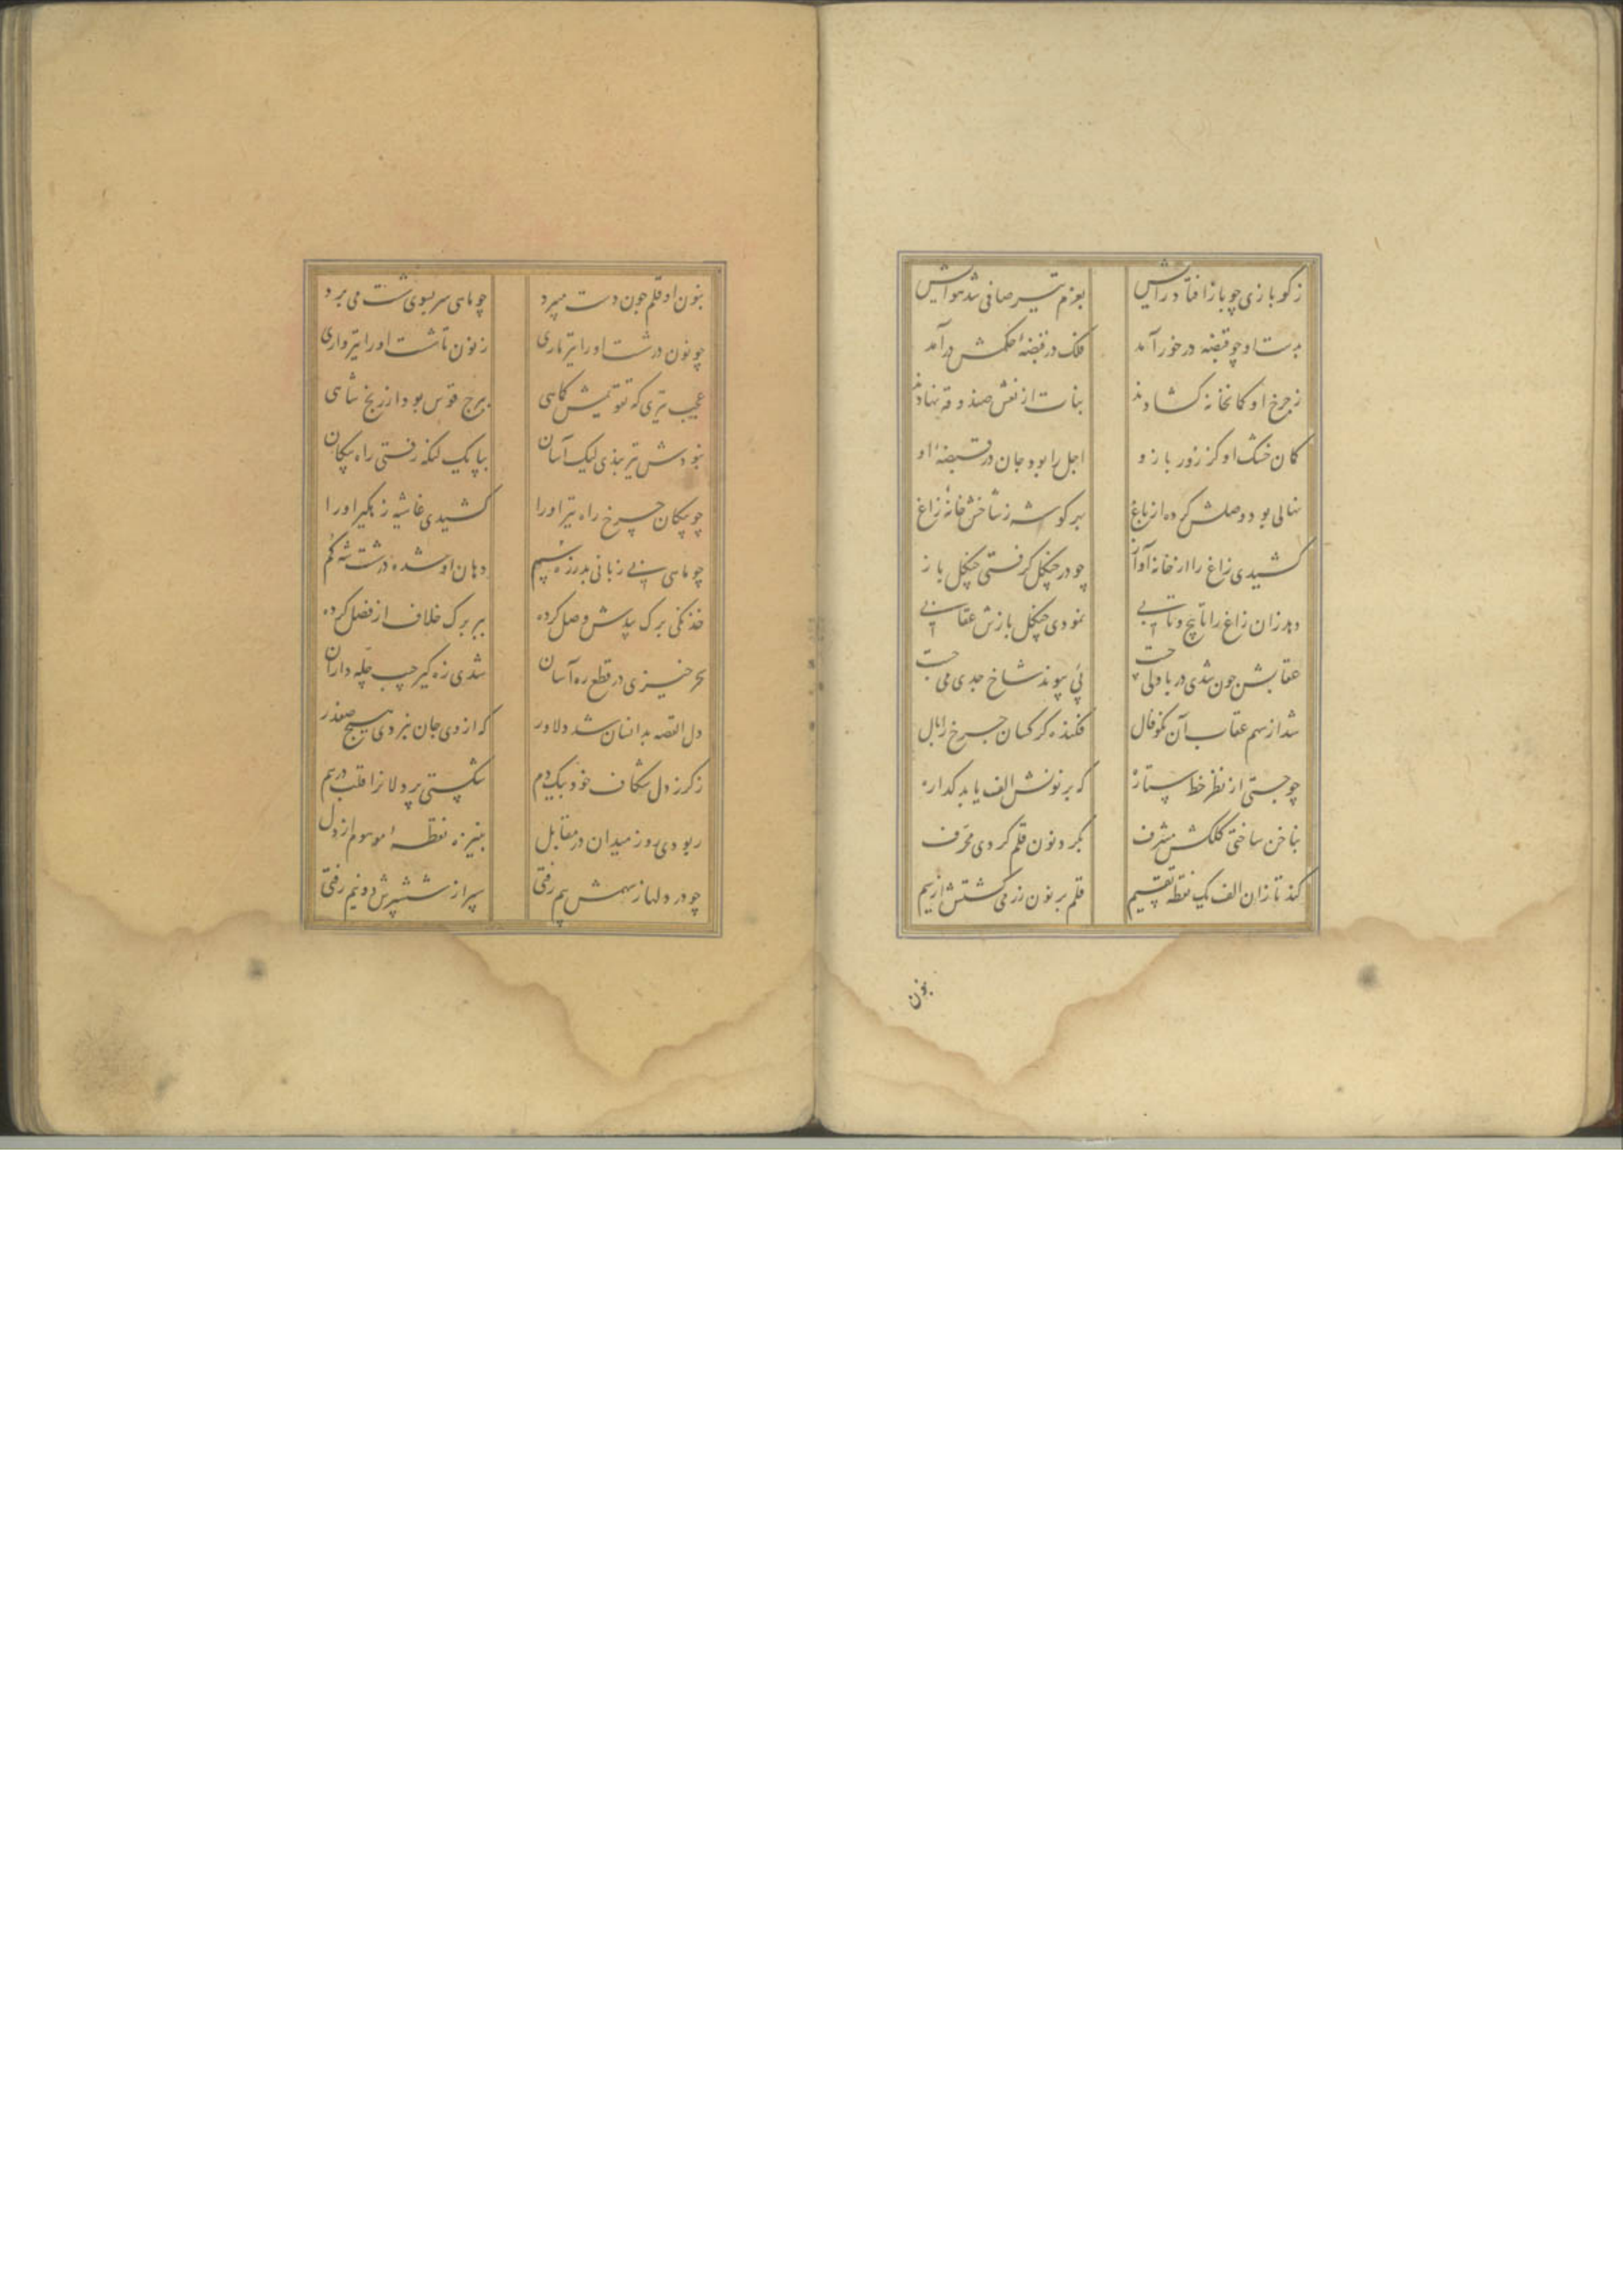 ز کو بازی چو باز افتاد رایش بعزم تیر صافی شد هوایش
بدست او چو قبضه در خور آمد فلک در قبضهٔ حکمش در آمد
ز چرخ او کمانخانه کشادند بنات از نعش صندوقه نهادند
کمان خشک او کز زور بازو اجل را بود جان در قبضهٔ او
نهالی بود وصلش کرده از باغ بهر گوشه ز شاخش خانهٔ زاغ
کشیدی زاغ را از خانه آواز چو در چنگل گرفتی چنگل باز
دهد زان زاغ را تا پیچ و تابی نمودی چنگل بازش عقابی
عقابش چون شدی در باد پی چست پی پیوند شاخ جدی می جست
شد از سهم عقاب آن نکو فال فکنده کرکسان چرخ را بال
چو جستی از نظر خط ستاره که بر نونش الف یابد گذاره
بناخن ساختی کلکش مشرف بگرد نون قلم کردی محرف
کند تا زان الف یک نقطه تقسیم قلم بر نون زر می گشتش از سیم
بنون
بنون او قلم چون دست میبرد چو ماهی سر بسوی شست می برد
چو نون در شست او را تیر ماری ز نون تا شست او را تیرواری
عجب تیری که تقویمش کماهی ببرج قوس بود از زیج شاهی
نبودش تیر بندی لیک آسان بپا یک لنگه رفتی راه پیکان
چو پیکان چرخ راه تیر او را کشیدی غاشیه زهگیر او را
چو ماهی بی زبانی بد زره سم دهان او شده در شست شه گم
خدنگی برگ بیدش وصل کرده ببر برگ خلاف از فصل کرده
سحر خیزی در قطع ره آسان شدی زه گیر چپ چله داران
دل القصه بدانسان شد دلاور که از وی جان نبردی هیچ صفدر
ز گرز دل شکاف خود بیکدم شکستی پردلانرا قلب در هم
ربودی روز میدان در مقابل بنیزه نقطهٔ موهوم از دل
چو در دلها ز سهمش بیم رفتی سپر از ششپرش دو نیم رفتی